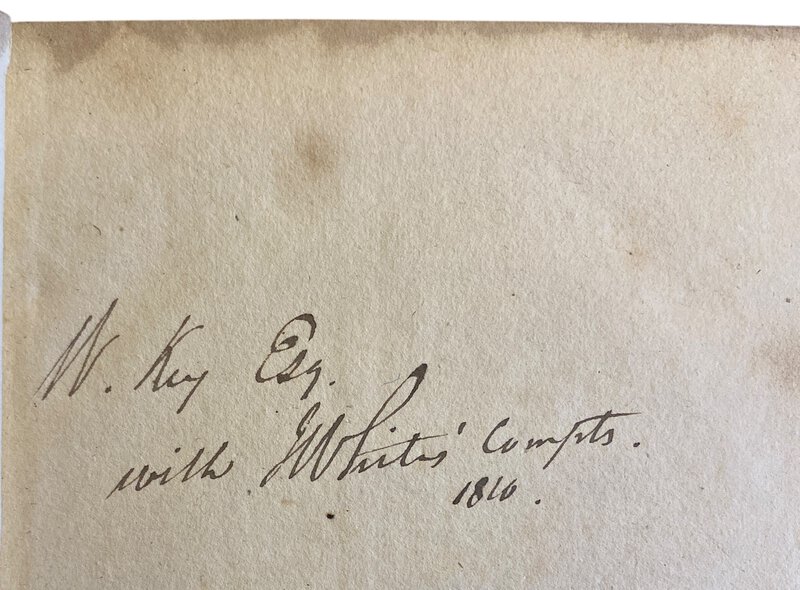 W. Key Esq.
with JWhite's compts.
1810.